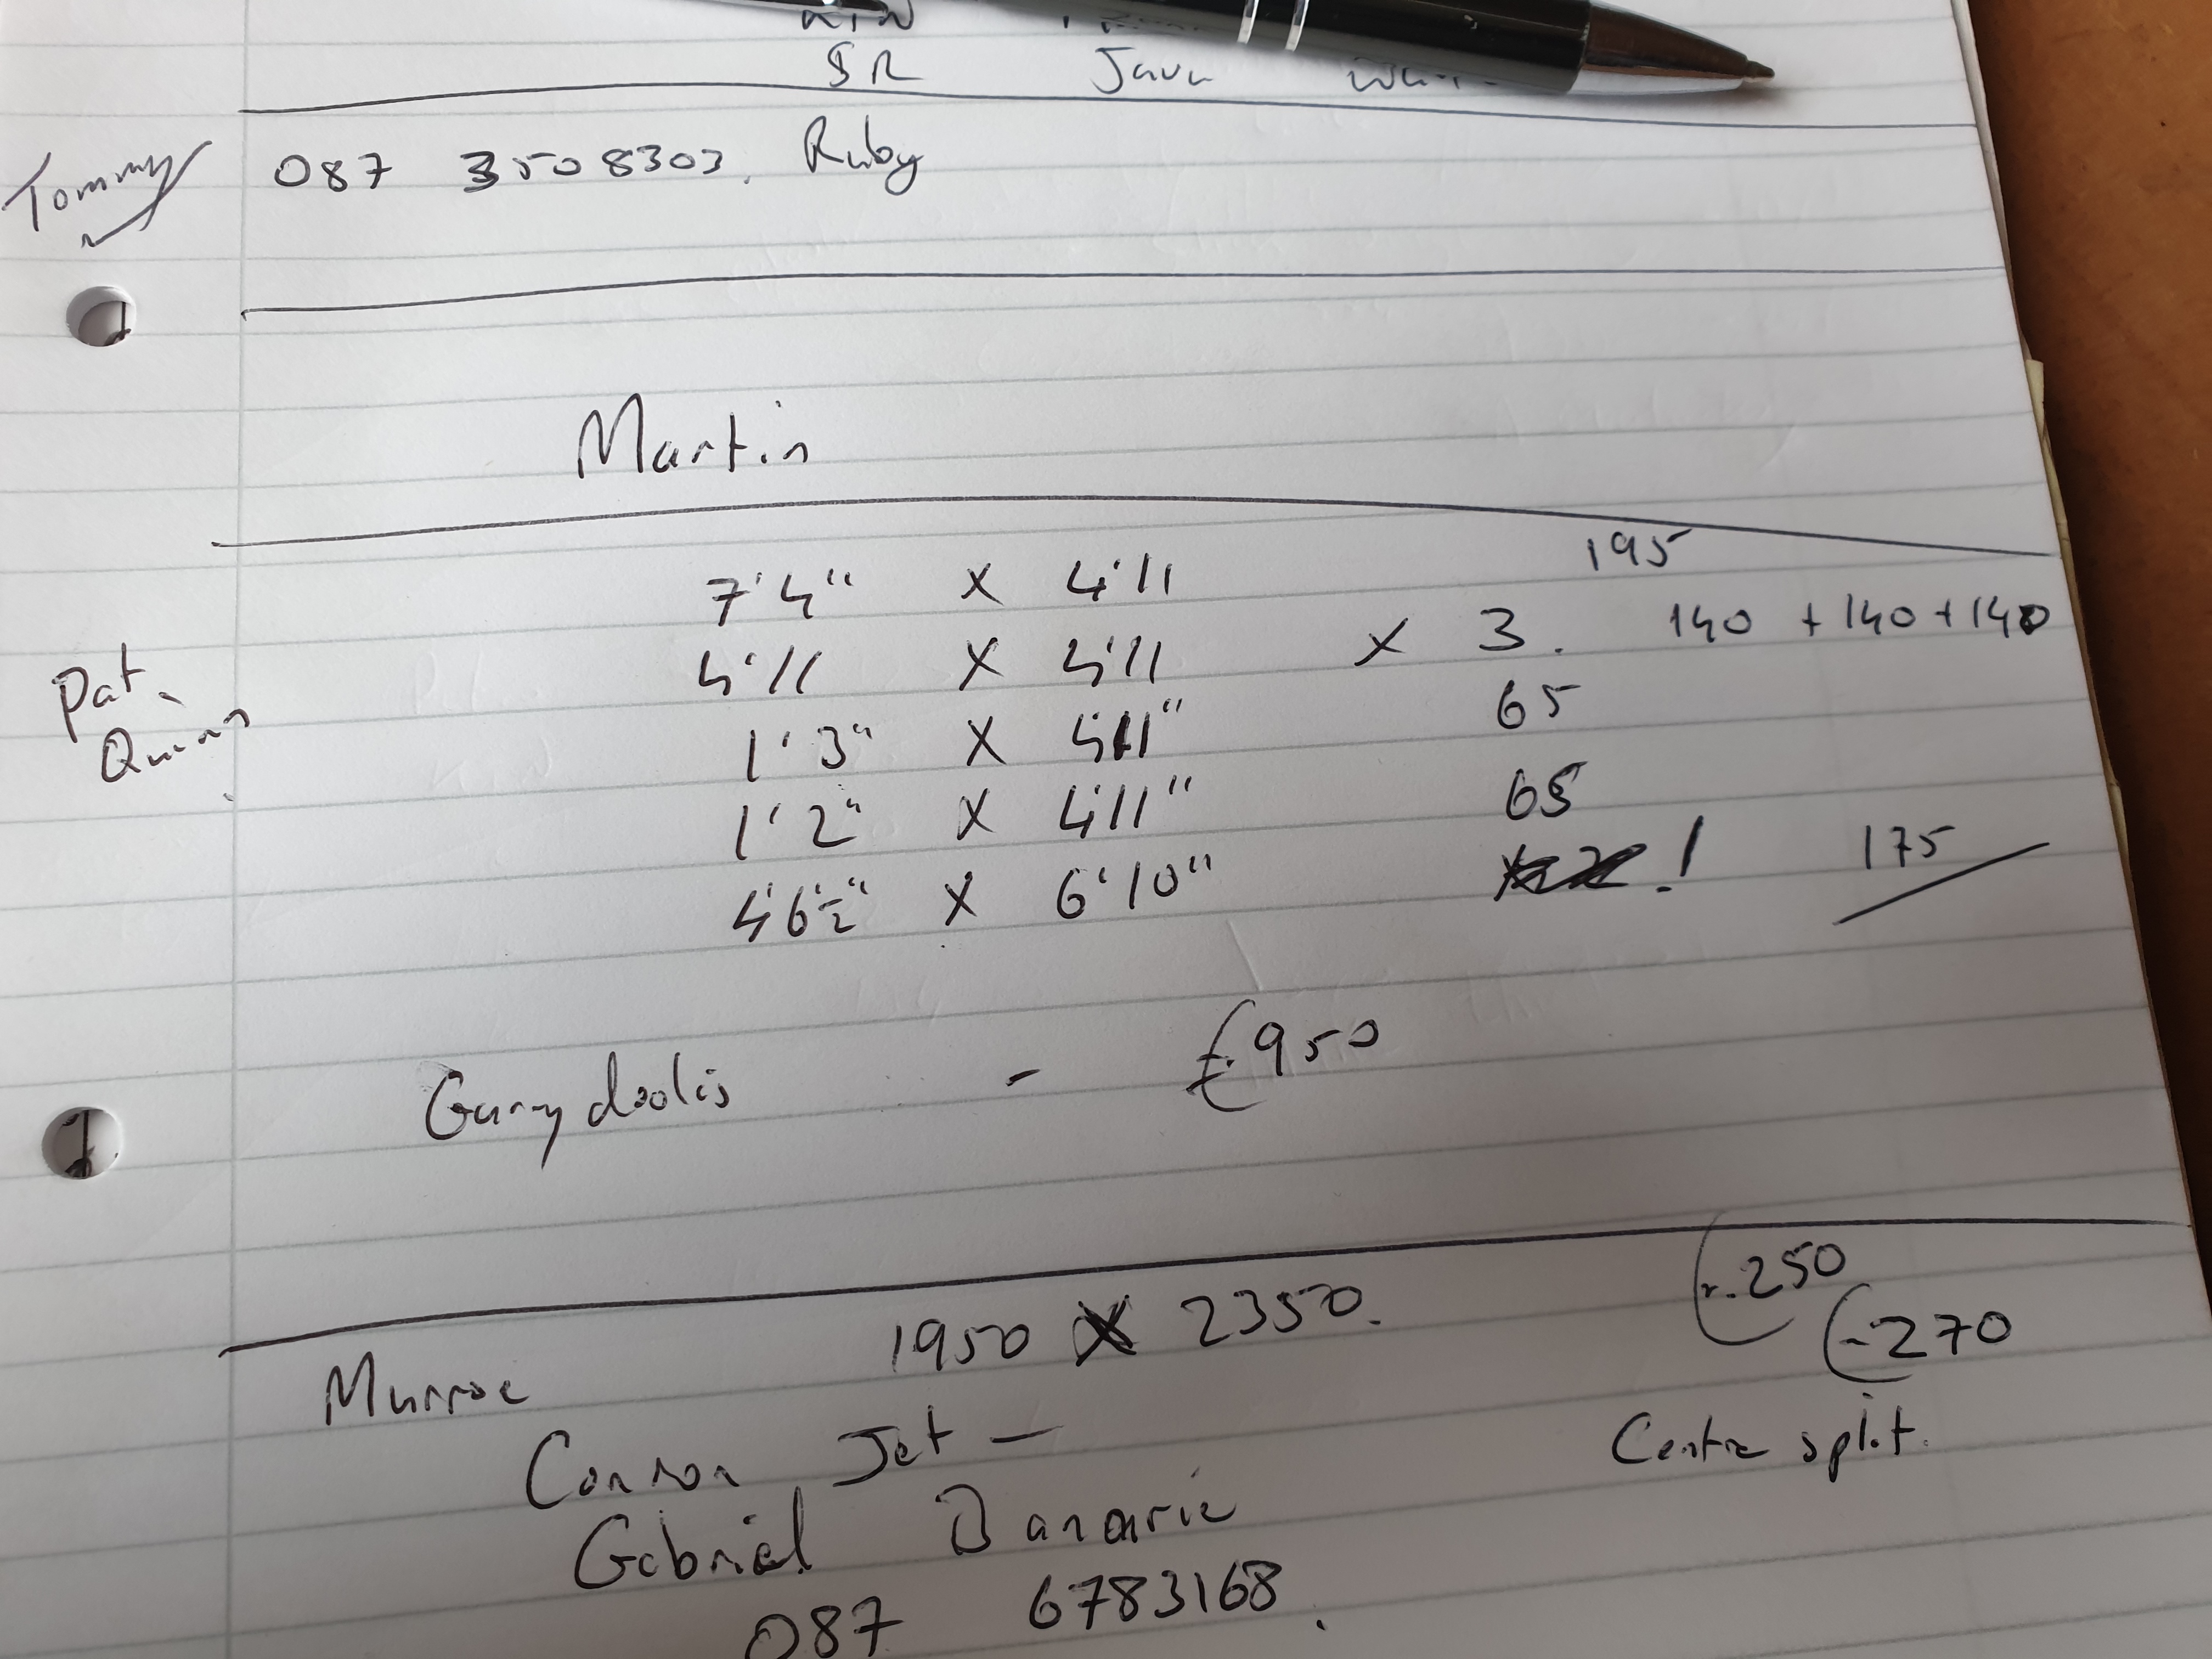 SR Java
Tommy 087 3508303. Ruby
Martin
7'4" X 4'11 195
4'11 X 4'11 X 3. 140 + 140 + 140
Pat
1'3" X 4'11" 65
1'2" X 4'11" 65
4'6½" X 6'10" 1 175
- €950
250
1950 X 2350. 270
Murroe
Connor Jet - Centre split.
Gabriel
087 6783168.